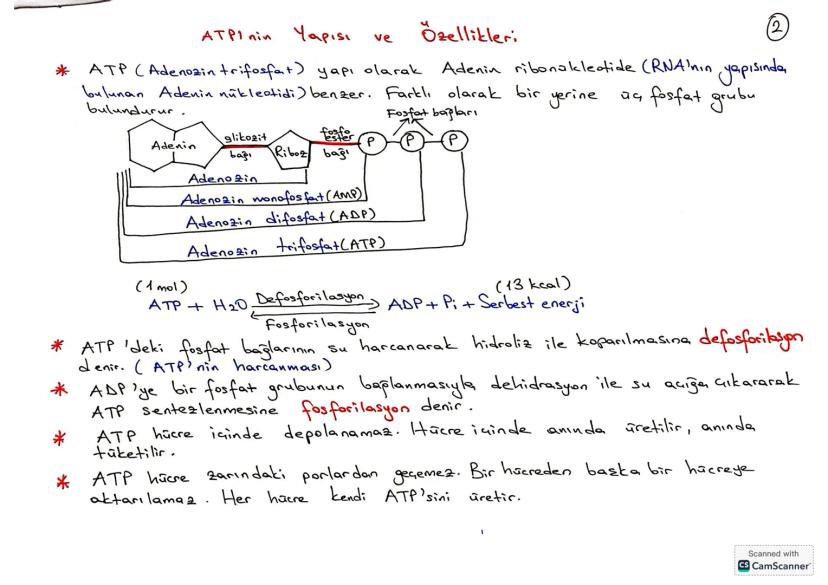 ATP'nin Yapısı ve Özellikleri
2
* ATP (Adenozin trifosfat) yapı olarak Adenin ribonükleotide (RNA'nın yapısında
bulunan Adenin nükleotidi) benzer. Farklı olarak bir yerine üç fosfat grubu
bulundurur.
Fosfat bağları
Adenin glikozit bağı Riboz fosfo ester bağı P P P
Adenozin
Adenozin monofosfat (AMP)
Adenozin difosfat (ADP)
Adenozin trifosfat (ATP)
(1 mol) (13 kcal)
ATP + H2O Defosforilasyon ADP + Pi + Serbest enerji
Fosforilasyon
* ATP'deki fosfat bağlarının su harcanarak hidroliz ile koparılmasına defosforilasyon
denir. (ATP'nin harcanması)
* ADP'ye bir fosfat grubunun bağlanmasıyla dehidrasyon ile su açığa çıkararak
ATP sentezlenmesine fosforilasyon denir.
* ATP hücre içinde depolanamaz. Hücre içinde anında üretilir, anında
tüketilir.
* ATP hücre zarındaki porlardan geçemez. Bir hücreden başka bir hücreye
aktarılamaz. Her hücre kendi ATP'sini üretir.
Scanned with
CS CamScanner